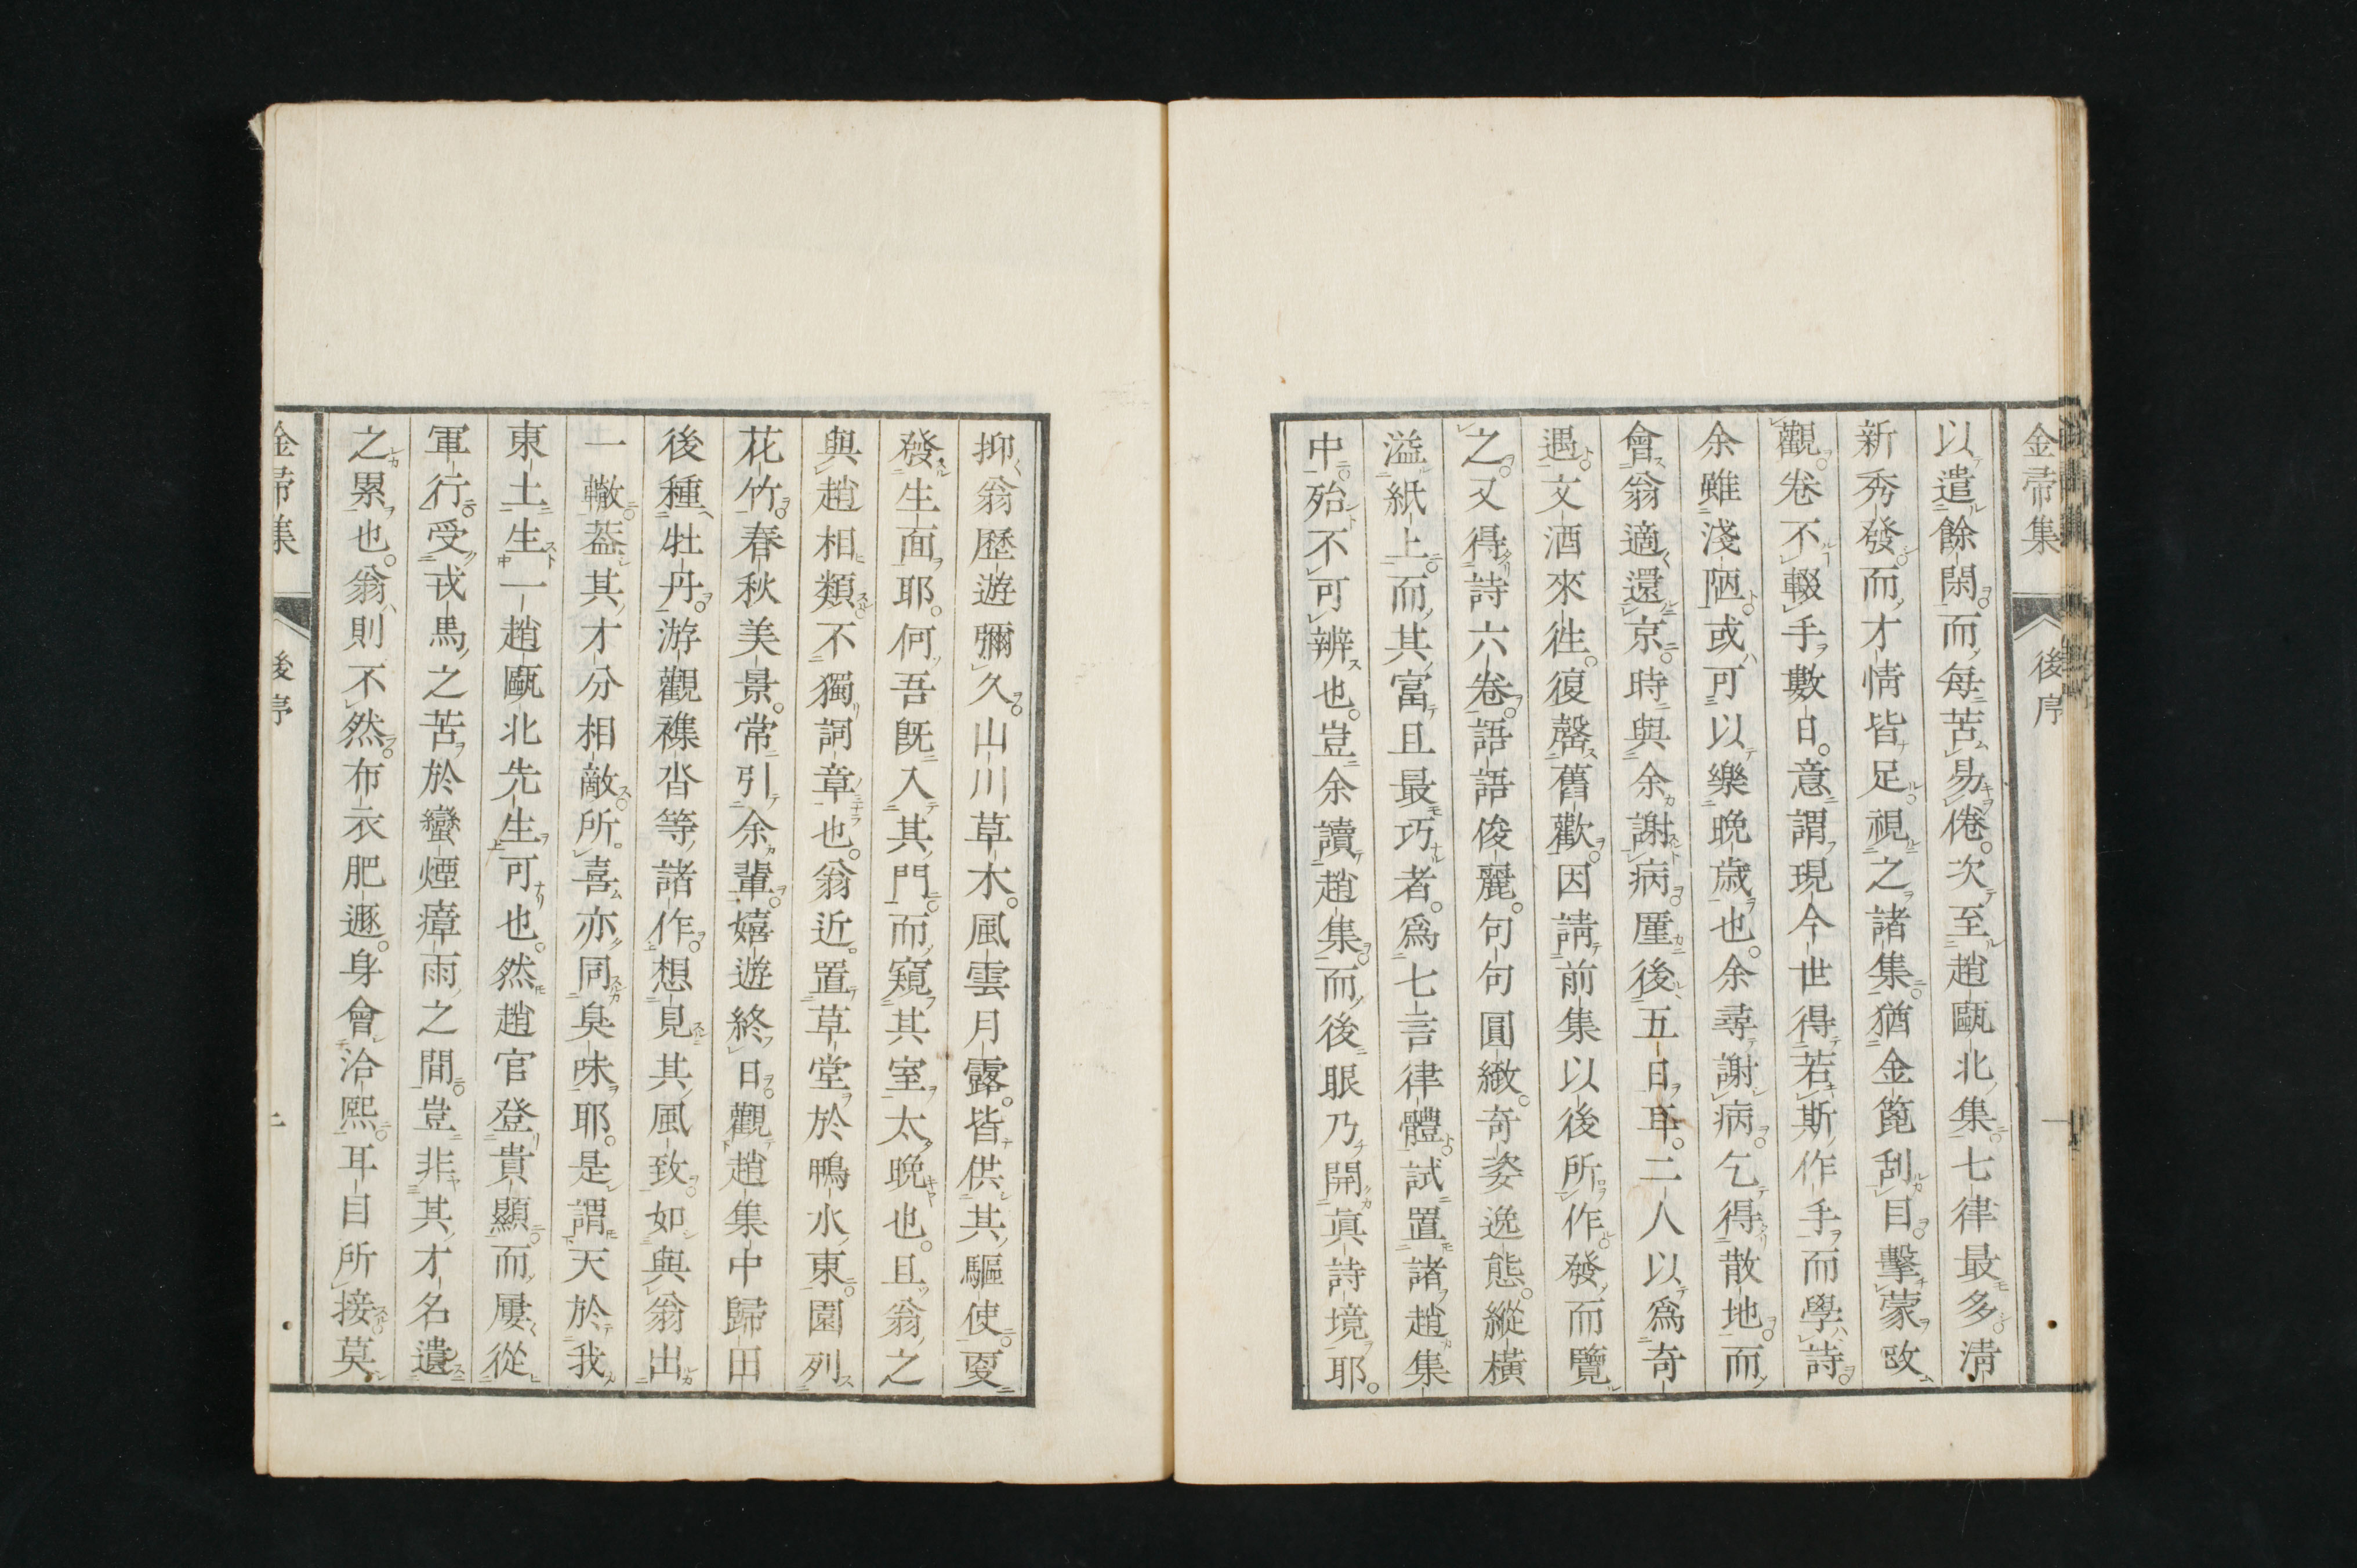 金帚集
後序
一
以遣餘閑而每苦易倦次至趙甌北集七律最多淸
新秀發而才情皆足視之諸集猶金篦刮目擊蒙改
觀卷不輟手數日意謂現今世得若斯作手而學詩
余雖淺陋或可以樂晩歲也余尋謝病乞得散地而
會翁適還京時與余謝病厪後五日耳二人以爲奇
遇文酒來徃復罄舊歡因請前集以後所作發而覽
之又得詩六卷語語俊麗句句圓緻奇姿逸態縱橫
溢紙上而其富且最巧者爲七言律體試置諸趙集
中殆不可辨也豈余讀趙集而後眼乃開眞詩境耶
抑翁歷遊彌久山川草木風雲月露皆供其驅使更
發生面耶何吾旣入其門而窺其室太晩也且翁之
與趙相類不獨詞章也翁近置草堂於鴨水東園列
花竹春秋美景常引余輩嬉遊終日觀趙集中歸田
後種牡丹游觀襍沓等諸作想見其風致如與翁出
一轍葢其才分相敵所喜亦同臭味耶是謂天於我
東土生一趙甌北先生可也然趙官登貴顯而屢從
軍行受戎馬之苦於蠻煙瘴雨之間豈非其才名遺
之累也翁則不然布衣肥遯身會洽熙耳目所接莫
金帚集
後序